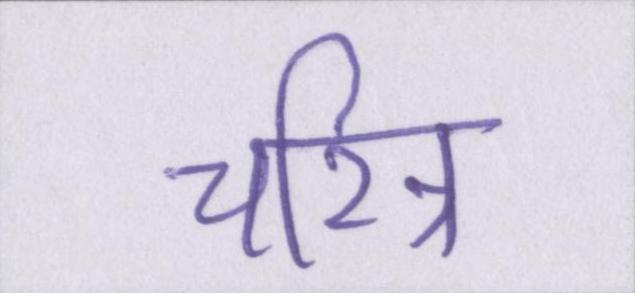 चरित्र